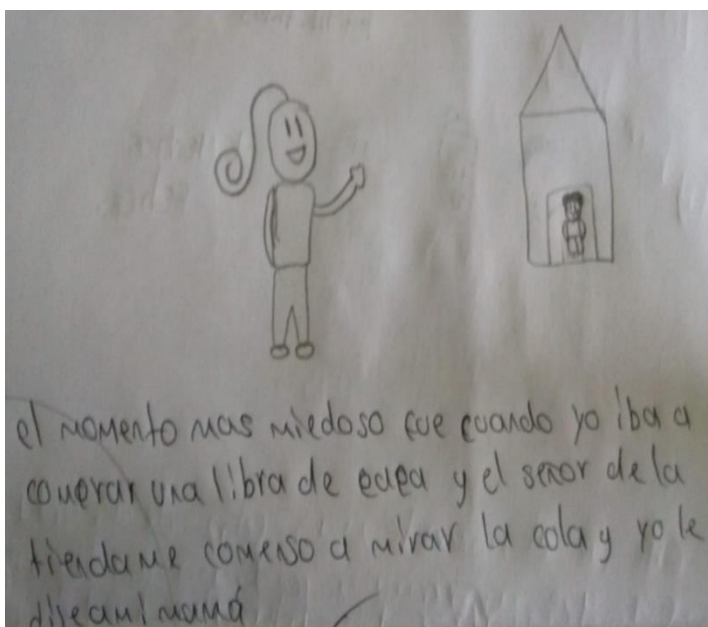 el momento mas miedoso fue cuando yo iba a
comprar una libra de papa y el señor de la
tiendame comenso a mirar la cola y yo le
dije ami mamá